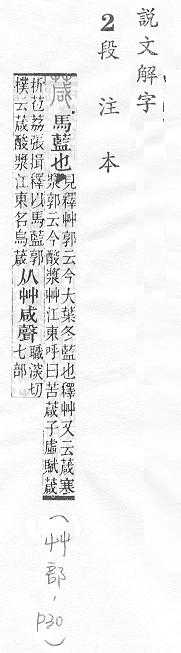 說文解字
2段注本
葴 馬藍也
見釋艸郭云今大葉冬藍也釋艸又云葴寒
漿郭云今酸漿艸江東呼曰苦葴子虛賦葴
析苞荔張揖釋以馬藍郭
樸云葴酸漿江東名烏葴
从艸咸聲
職深切
七部
(艸部,P30)